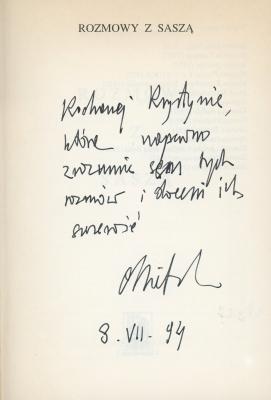 ROZMOWY Z SASZĄ
Kochanej Krystynie,
która napewno
zrozumie sens tych
rozmów i doceni ich
szczerość
8. VII. 94